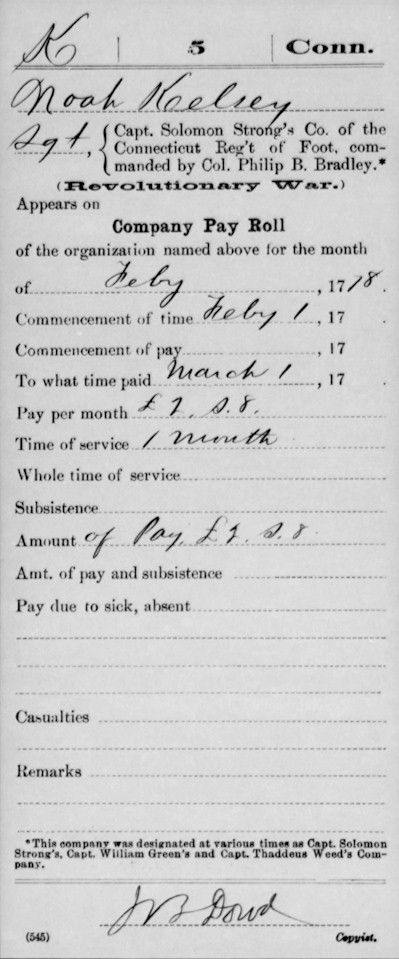 K | 5 | Conn.
Noah Kelsey
Sgt, { Capt. Solomon Strong's Co. of the
Connecticut Reg't of Foot, com-
manded by Col. Philip B. Bradley.*
(Revolutionary War.)
Appears on
Company Pay Roll
of the organization named above for the month
of Feby, 1778.
Commencement of time Feby 1, 17 .
Commencement of pay, 17
To what time paid March 1, 17 .
Pay per month £ 2. s. 8.
Time of service 1 month
Whole time of service
Subsistence
Amount of Pay £ 2. s. 8
Amt. of pay and subsistence
Pay due to sick, absent
Casualties
Remarks
*This company was designated at various times as Capt. Solomon
Strong's, Capt. William Green's and Capt. Thaddeus Weed's Com-
pany.
J B Dowd
(545) Copyist.